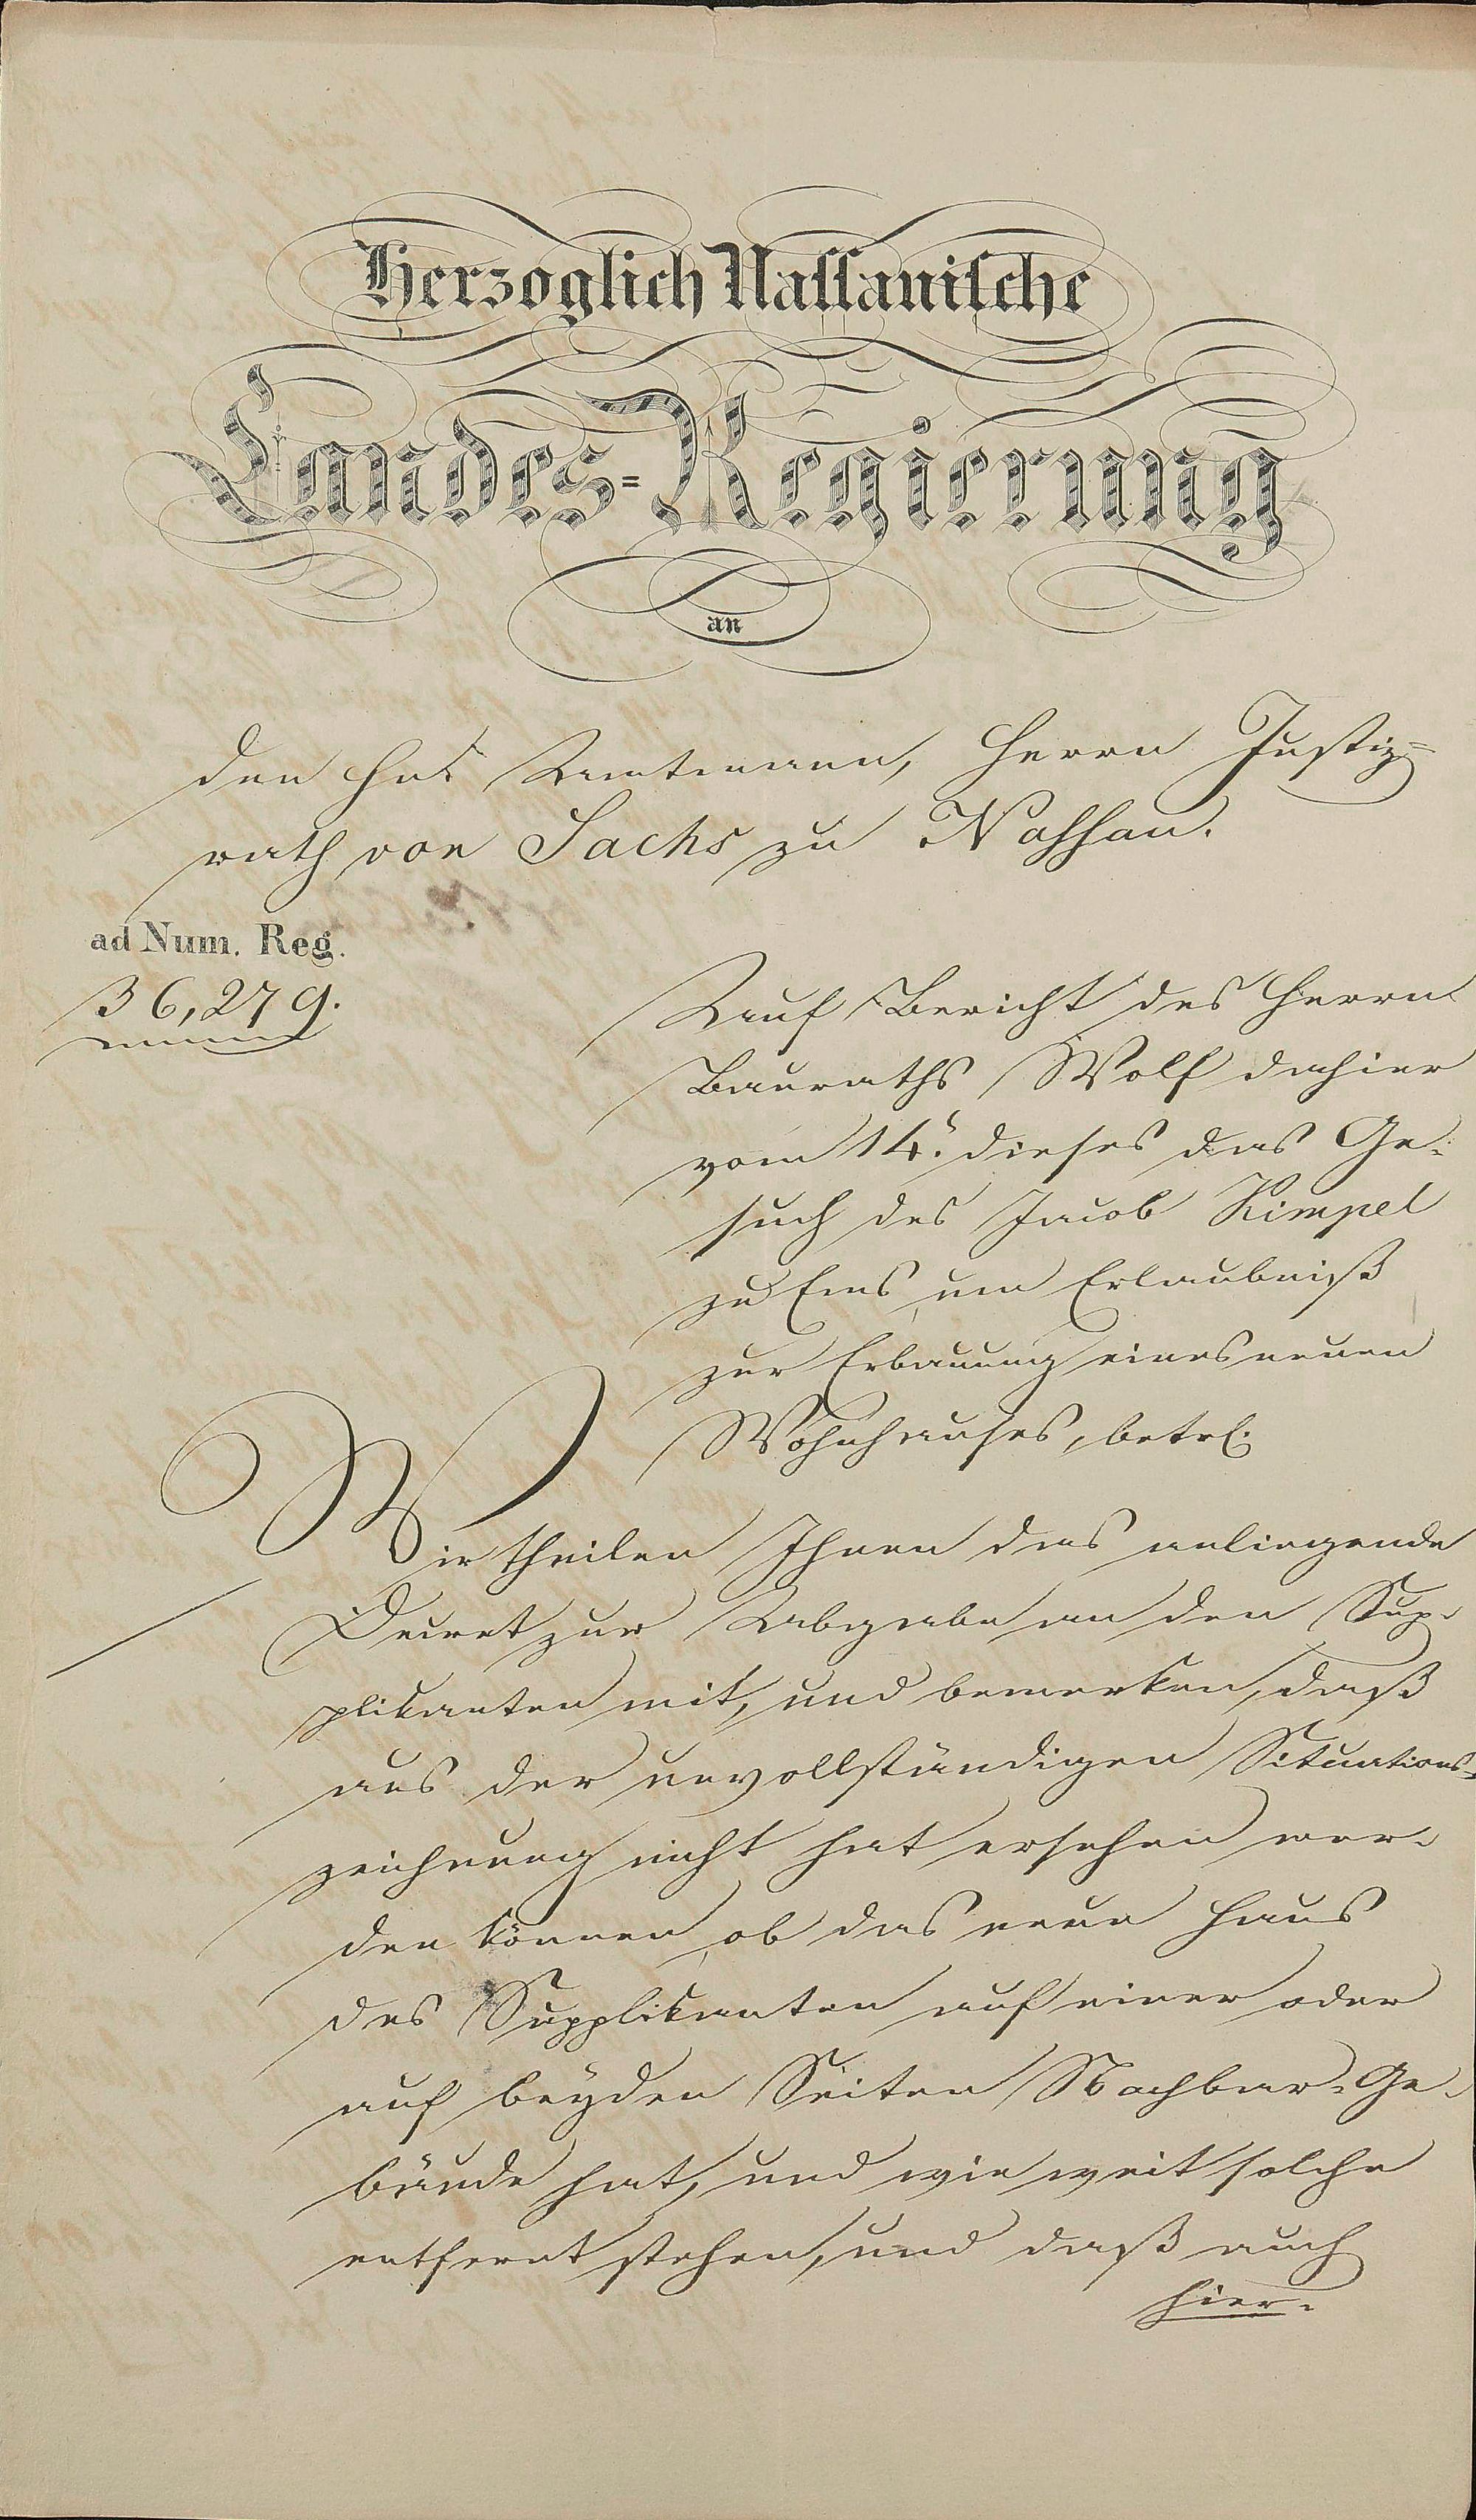 Herzoglich Nassauische
Landes-Regierung
an
den Hrn Amtmann, Herrn Justiz-
rath von Sachs zu Nassau.
ad Num. Reg.
36,279.
Auf Bericht des Herrn
Bauraths Wolf dahier
vom 14. dieses das Ge-
such des Jacob Rimpel
zu Ems um Erlaubniß
zur Erbauung eines neuen
Wohnhauses, betrf.
Wir theilen Ihnen das anliegende
Decret zur Abgabe an den Sup-
plikanten mit, und bemerken, daß
aus der unvollständigen Situations-
zeichnung nicht hat ersehen wer-
den können, ob das neue Haus
des Supplikanten auf einer oder
auf beyden Seiten Nachbar-Ge-
bäude hat, und wie weit solche
entfernt stehen, und daß auch
hier-